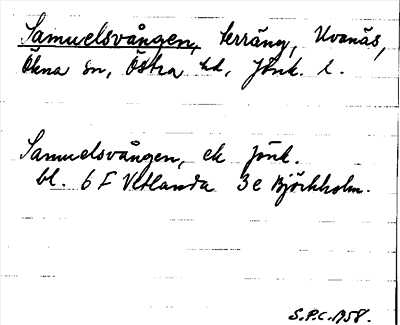 Samuelsvången, terräng, Uvanäs,
Ökna sn, Östra hd, Jönk. l.
Samuelsvången, ek Jönk.
bl. 6 F Vetlanda 3e Björkholm.
S.P.C. 1958.